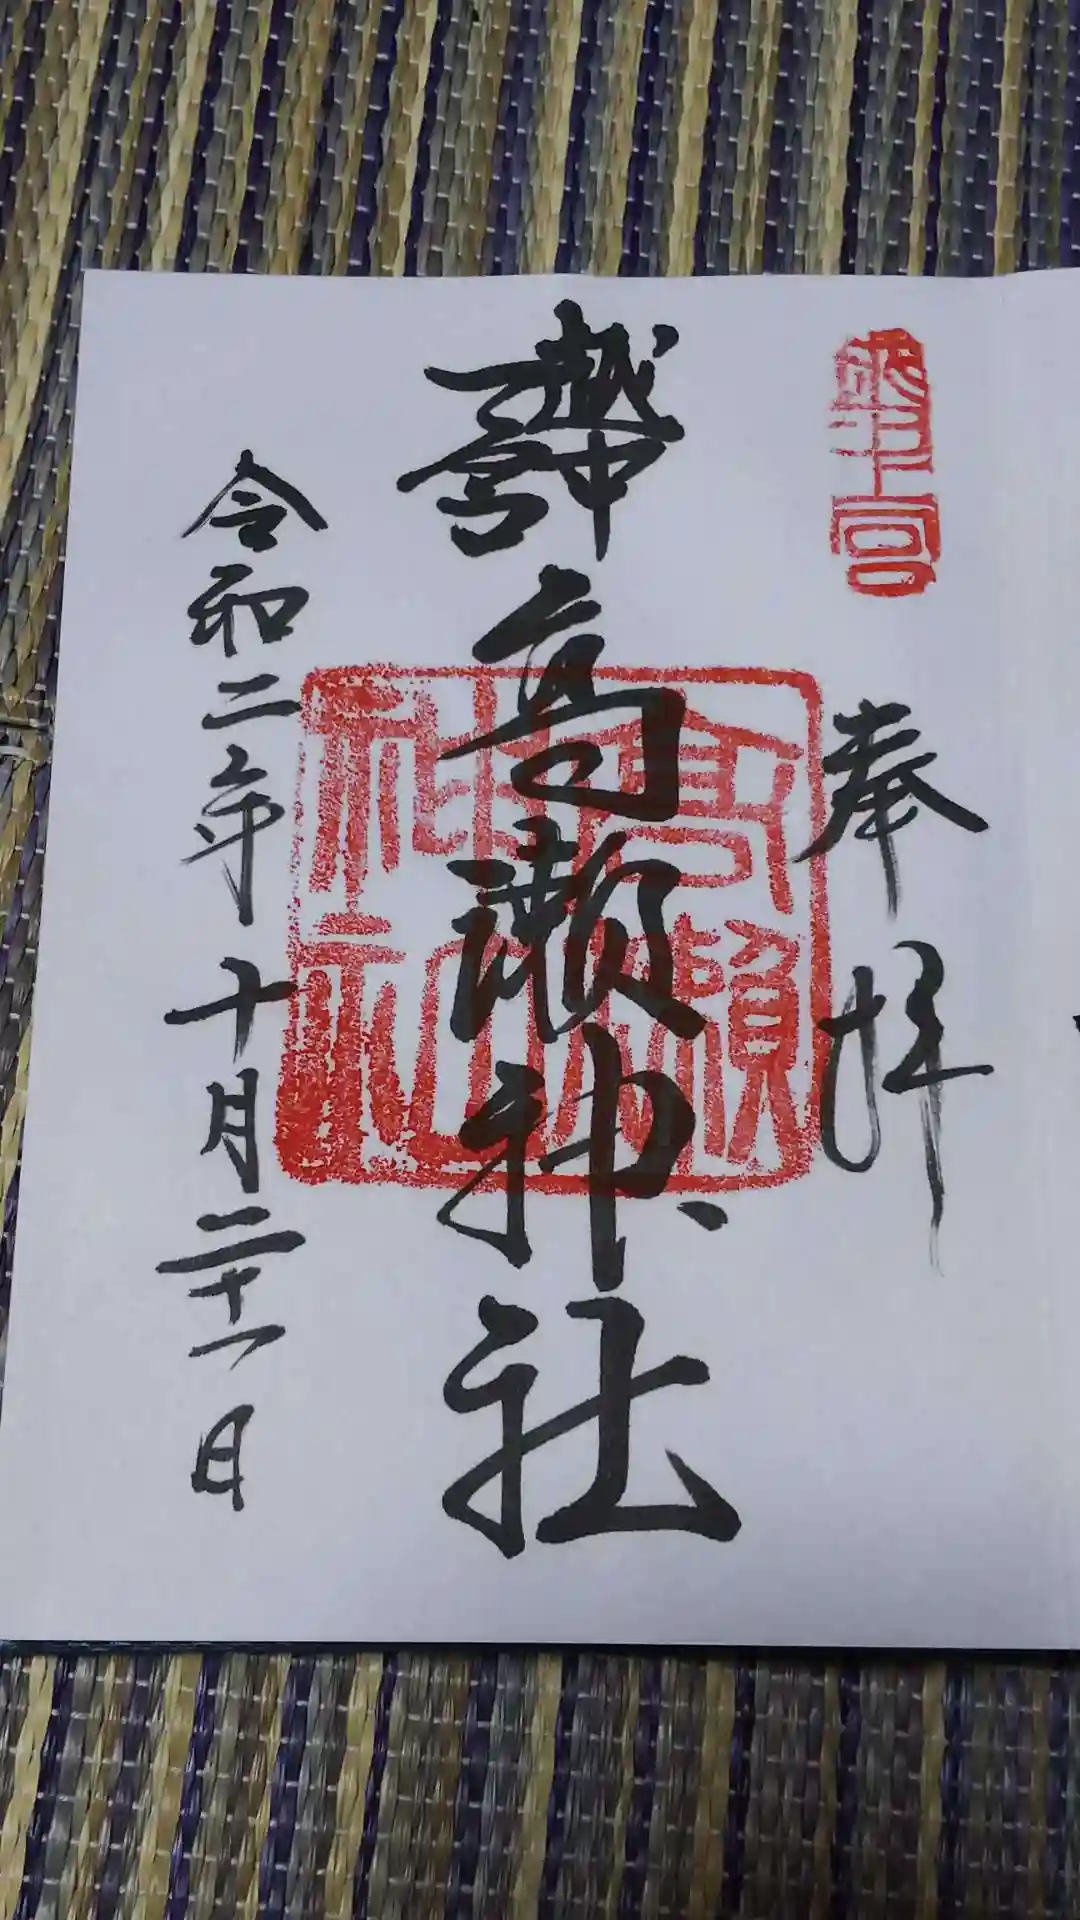 奉拝
越中
一宮
高瀬神社
高瀬
神社
令和二年十月二十一日